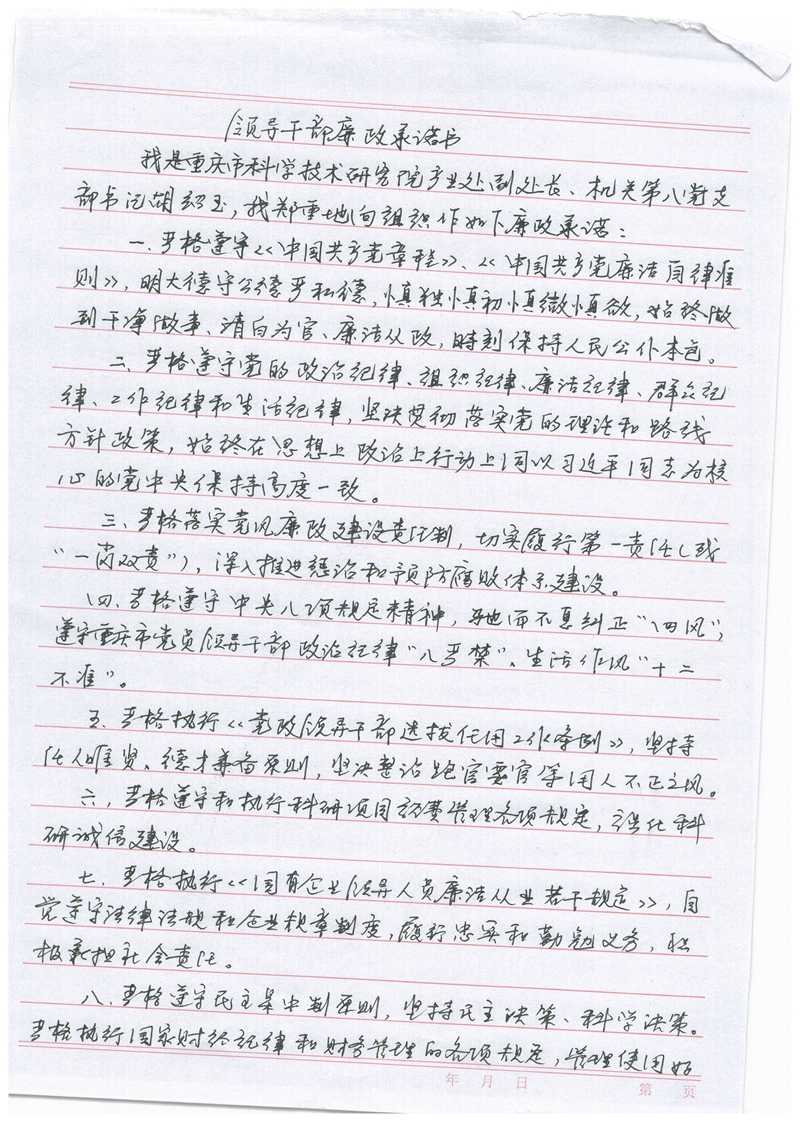 领导干部廉政承诺书
我是重庆市科学技术研究院产业处副处长、机关第八党支
部书记胡绍玉,我郑重地向组织作如下廉政承诺:
一、严格遵守《中国共产党章程》、《中国共产党廉洁自律准
则》,明大德守公德严私德,慎独慎初慎微慎欲,始终做
到干净做事、清白为官、廉洁从政,时刻保持人民公仆本色。
二、严格遵守党的政治纪律、组织纪律、廉洁纪律、群众纪
律、工作纪律和生活纪律,坚决贯彻落实党的理论和路线
方针政策,始终在思想上政治上行动上同以习近平同志为核
心的党中央保持高度一致。
三、严格落实党风廉政建设责任制,切实履行第一责任(或
“一岗双责”),深入推进惩治和预防腐败体系建设。
四、严格遵守中央八项规定精神,驰而不息纠正“四风”,
遵守重庆市党员领导干部政治纪律“八严禁”、生活作风“十二
不准”。
五、严格执行《党政领导干部选拔任用工作条例》,坚持
任人唯贤、德才兼备原则,坚决整治跑官要官等用人不正之风。
六、严格遵守和执行科研项目经费管理各项规定,强化科
研诚信建设。
七、严格执行《国有企业领导人员廉洁从业若干规定》,自
觉遵守法律法规和企业规章制度,履行忠实和勤勉义务,积
极承担社会责任。
八、严格遵守民主集中制原则,坚持民主决策、科学决策。
严格执行国家财经纪律和财务管理的各项规定,管理使用好
年 月 日 第 页